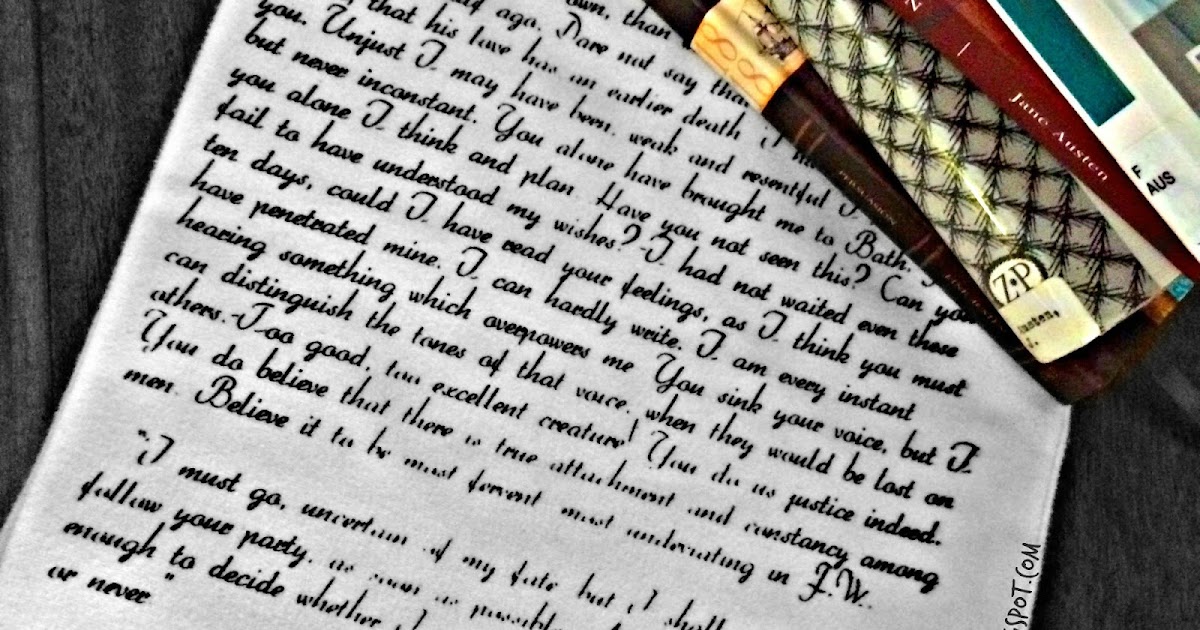 ago. Dare not say that
that his love has an earlier death. I
you. Unjust I may have been, weak and resentful I
but never inconstant. You alone have brought me to Bath.
you alone I think and plan. Have you not seen this? Can you
fail to have understood my wishes?-I had not waited even these
ten days, could I have read your feelings, as I think you must
have penetrated mine. I can hardly write. I am every instant
hearing something which overpowers me You sink your voice, but I
can distinguish the tones of that voice, when they would be lost on
others.-Too good, too excellent creature! You do us justice indeed.
You do believe that there is true attachment and constancy among
men. Believe it to be most fervent most undeviating in F.W.
"I must go, uncertain of my fate but I shall
follow your party, as soon as possible
enough to decide whether
or never"
Jane Austen
PERSUASION
F
AUS
Z·P
SPOT.COM